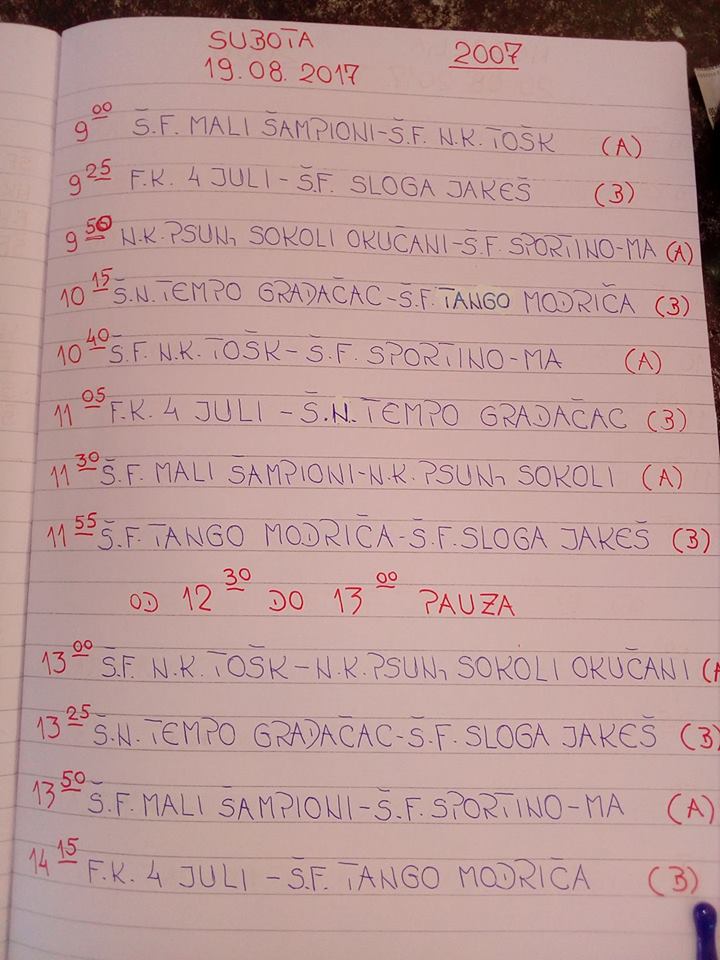 SUBOTA 2007
19.08.2017
9 00 Š.F. MALI ŠAMPIONI-Š.F. N.K. TOŠK (A)
9 25 F.K. 4 JULI - Š.F. SLOGA JAKEŠ (B)
9 50 N.K. PSUNJ SOKOLI OKUČANI-Š.F. SPORTINO-MA (A)
10 15 Š.N. TEMPO GRADAČAC-Š.F. TANGO MODRIČA (B)
10 40 Š.F. N.K. TOŠK-Š.F. SPORTINO-MA (A)
11 05 F.K. 4 JULI - Š.N. TEMPO GRADAČAC (B)
11 30 Š.F. MALI ŠAMPIONI-N.K. PSUNJ SOKOLI (A)
11 55 Š.F. TANGO MODRIČA-Š.F. SLOGA JAKEŠ (B)
OD 12 30 DO 13 00 PAUZA
13 00 Š.F. N.K. TOŠK-N.K. PSUNJ SOKOLI OKUČANI (A
13 25 Š.N. TEMPO GRADAČAC-Š.F. SLOGA JAKEŠ (B)
13 50 Š.F. MALI ŠAMPIONI-Š.F. SPORTINO-MA (A)
14 15 F.K. 4 JULI - Š.F. TANGO MODRIČA (B)